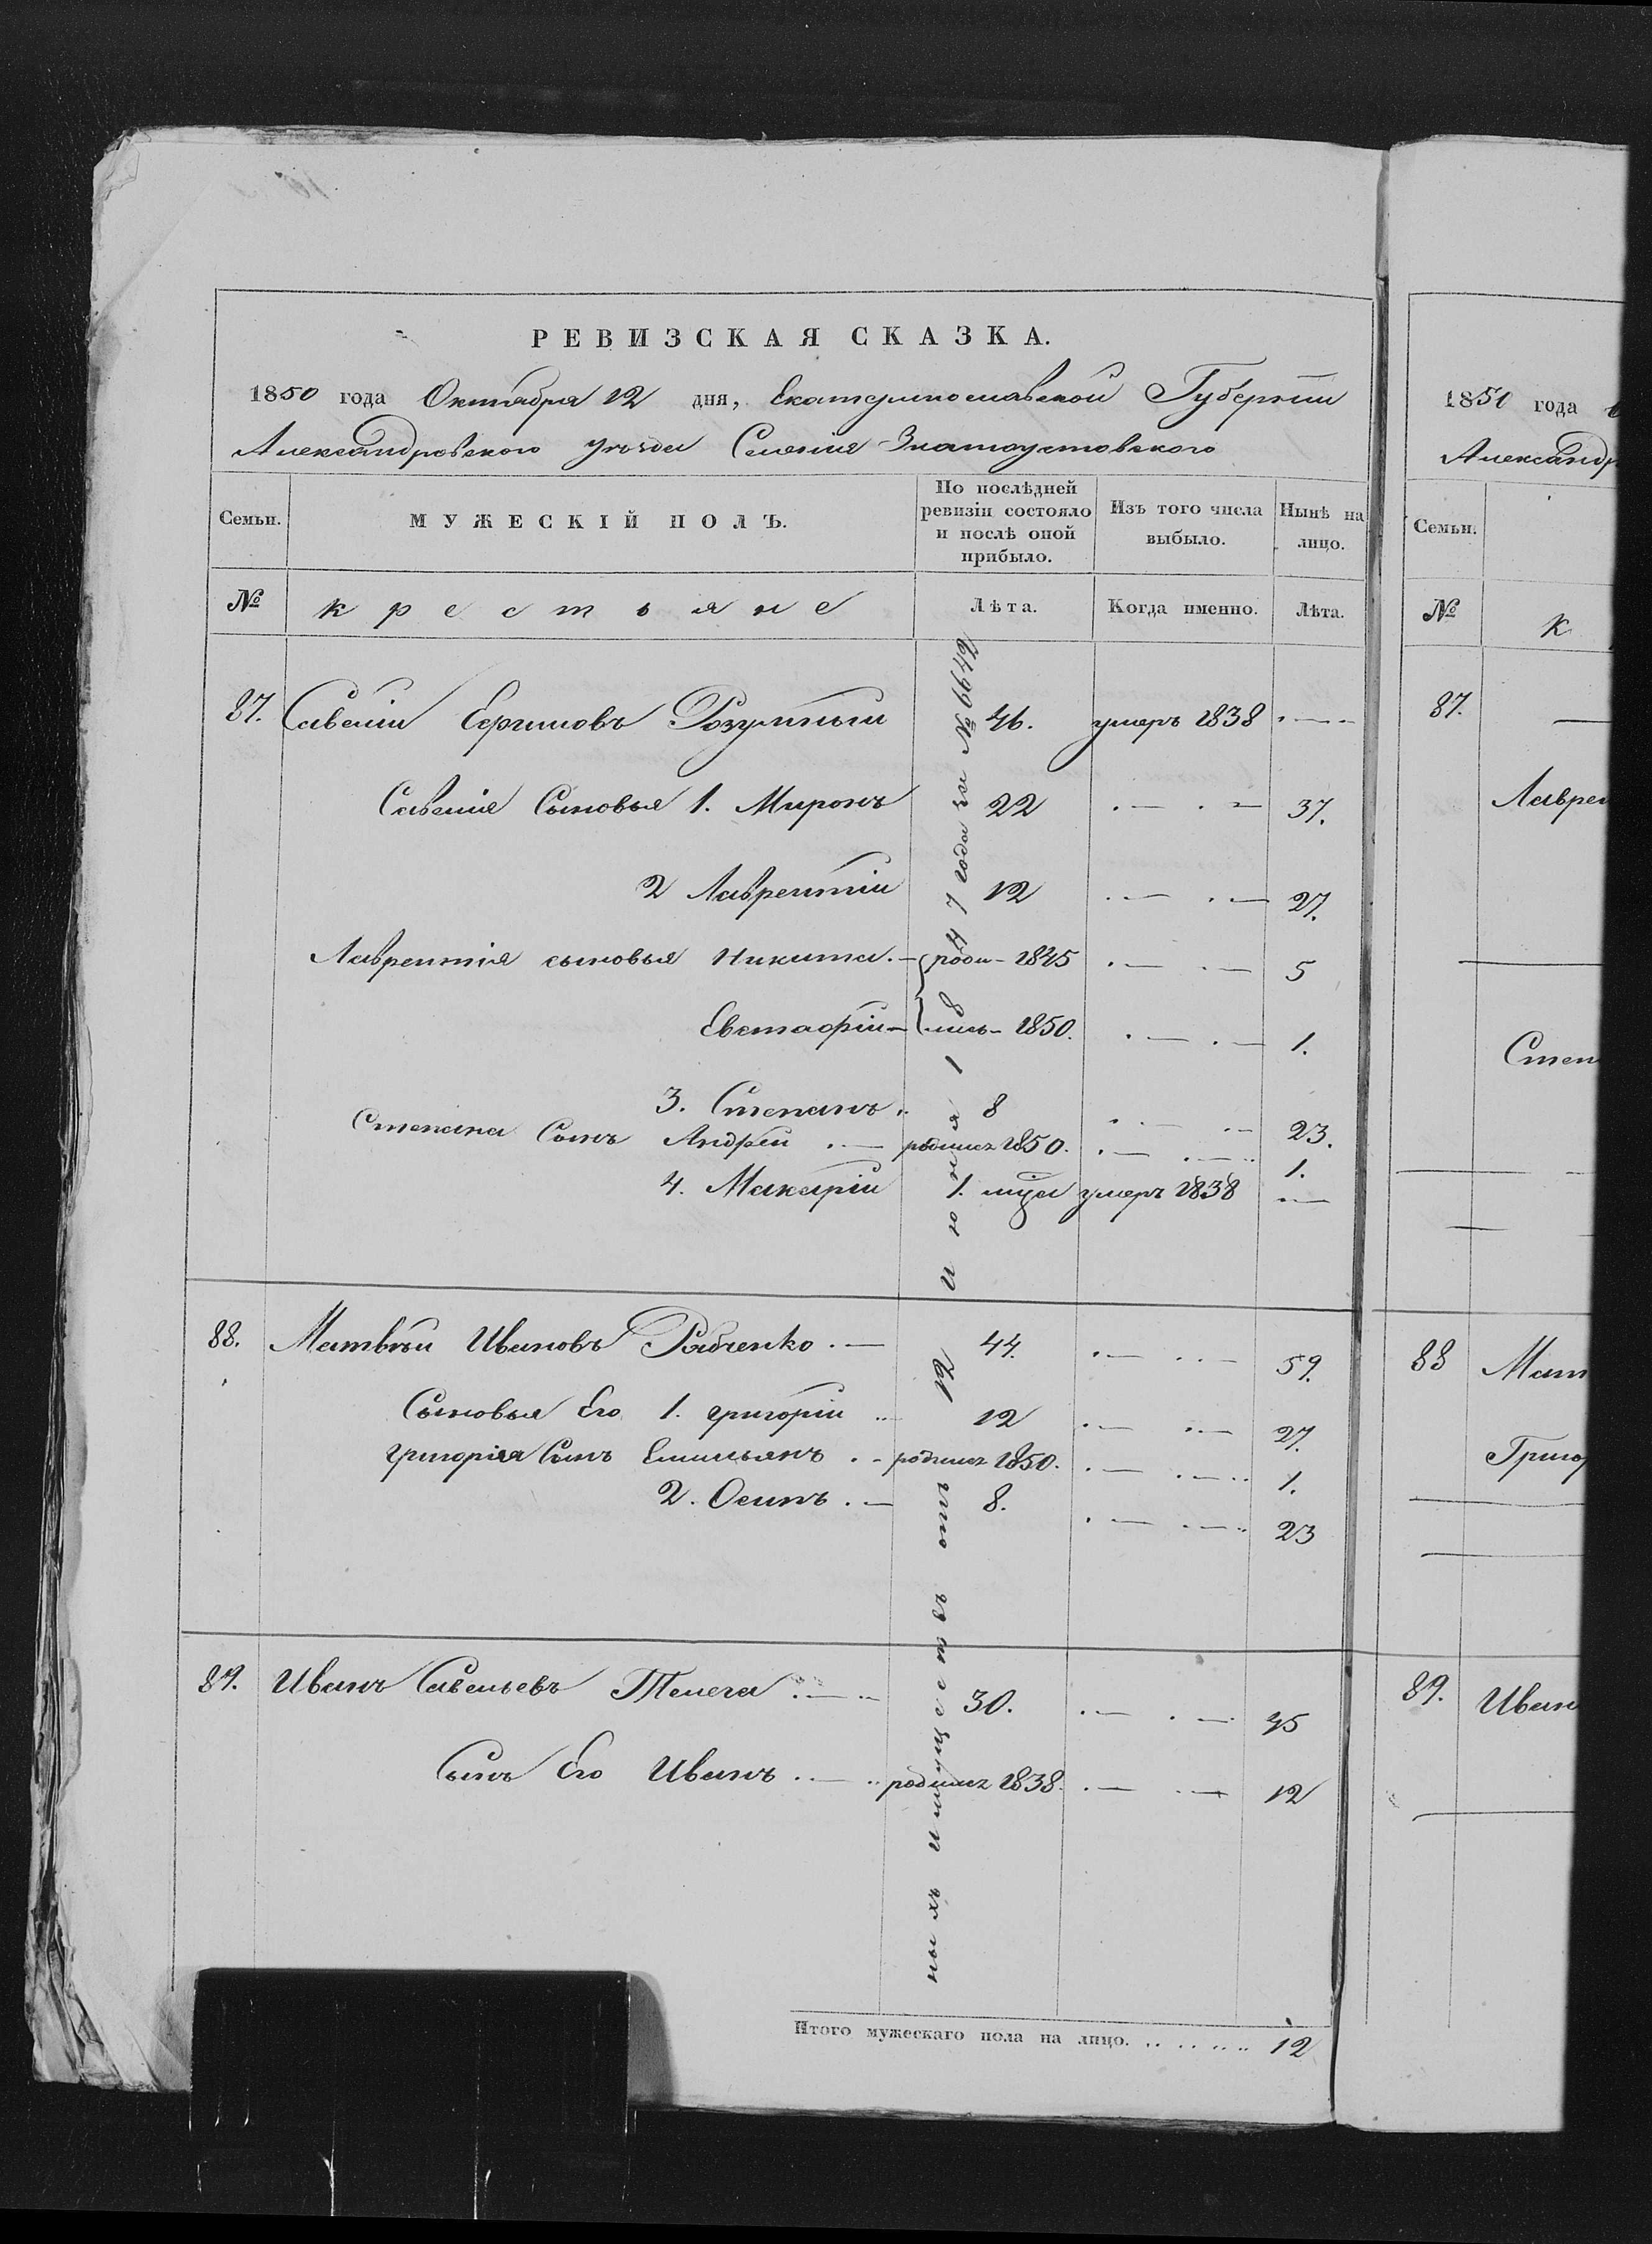 РЕВИЗСКАЯ СКАЗКА.
1850 года Октября 12 дня, Екатеринославской Губернии
Александровского уѣзда Селения Златоустовского
Семьи. МУЖЕСКІЙ ПОЛЪ. По послѣдней ревизіи состояло и послѣ оной прибыло. Изъ того числа выбыло. Нынѣ на лицо.
№ крестьяне Лѣта. Когда именно. Лѣта.
87. Савелій Розумный 46. умеръ 1838 . — . —
Савелія Сыновья 1. Миронъ 22 . — . — 37.
2 Лаврентій 12 . — . — 27.
Лаврентія сыновья Никита. — роди- 1845 . — . — 5
Евстафій — лись- 1850. . — . — 1.
3. Степанъ. 8 . — . — 23.
Степана Сынъ Андрей . — родился 1850. . — . — 1.
4. Макарій 1. мца умеръ 1838 . —
88. Матвѣй Ивановъ Рябченко . — 44. . — . — 59.
Сыновья Его 1. григорій .. 12 . — . — 27.
григорія Сынъ Емильянъ . - родился 1850. . — . — 1.
2. Осипъ . — 8. . — . — 23
89. Иванъ Савельевъ Телега . — 30. . — . — 45
Сынъ Его Иванъ . — родился 1838. . — . — 12
ныхъ имуществъ отъ 12 Июня 1847 года за № 6642
Итого мужескаго пола на лицо. ........ 12
1850 года
Александр
Семьи.
№ К
87. —
Лаврен
Степ
88 Мат
Григор
89. Иван